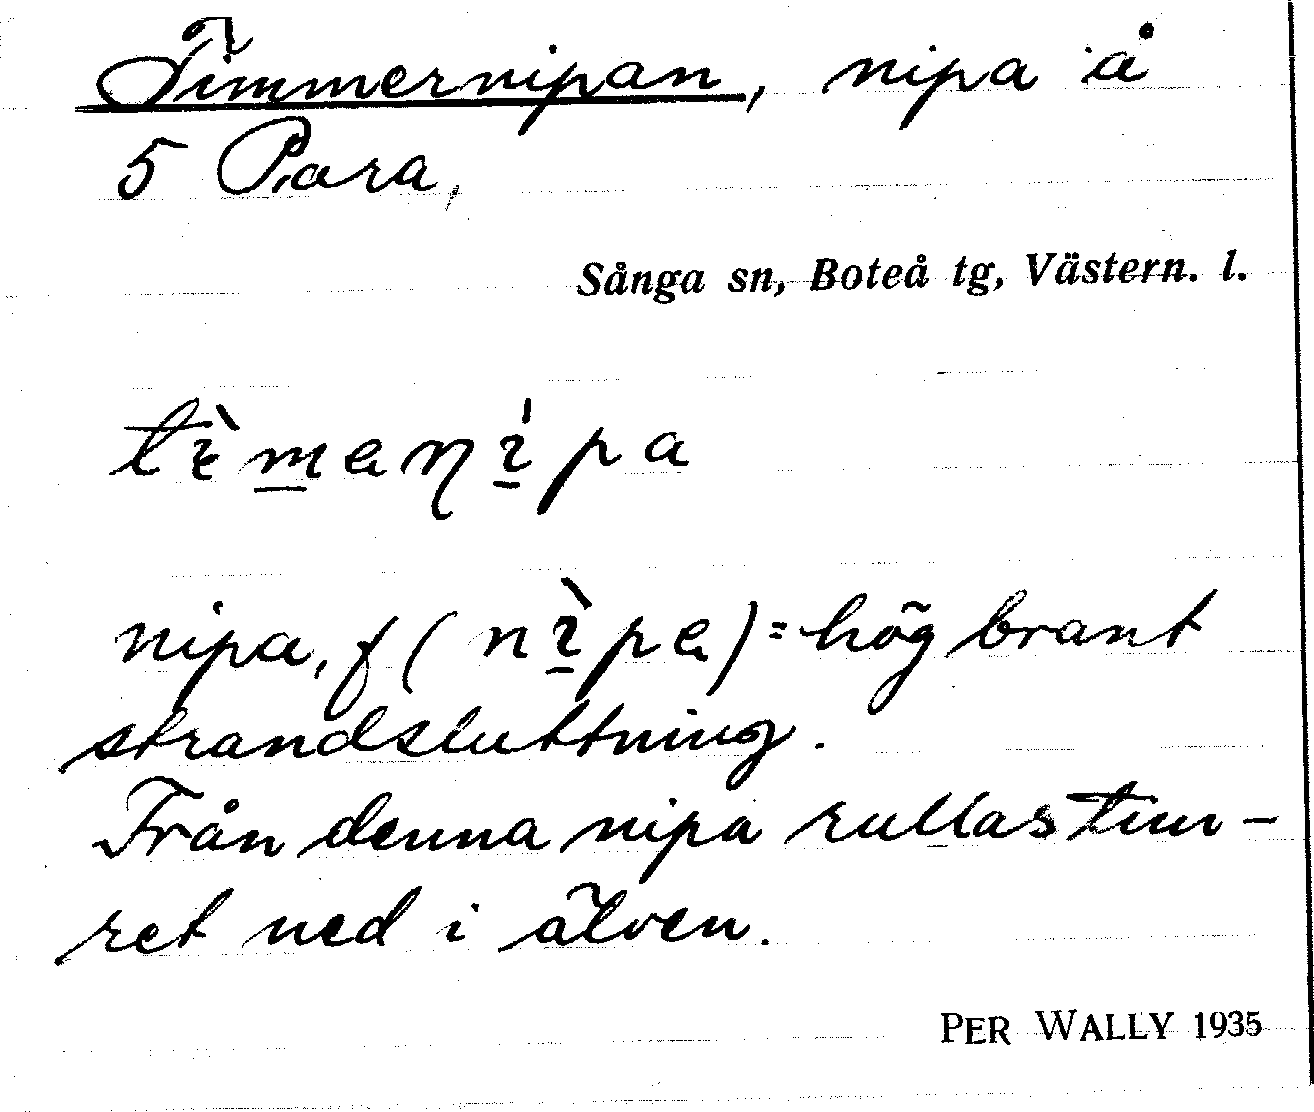 Timmernipan, nipa å
5 Para,
Sånga sn, Boteå tg, Västern. l.
nipa, f ( ) = hög brant
strandsluttning.
Från denna nipa rullas tim-
ret ned i älven.
PER WALLY 1935